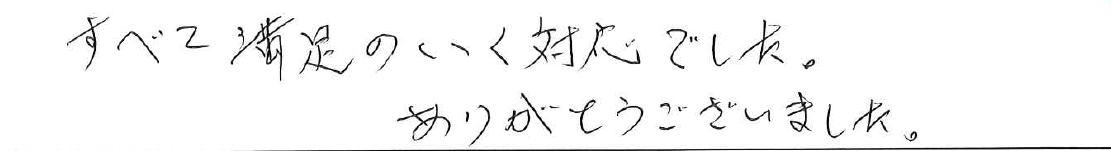 すべて満足のいく対応でした。
ありがとうございました。